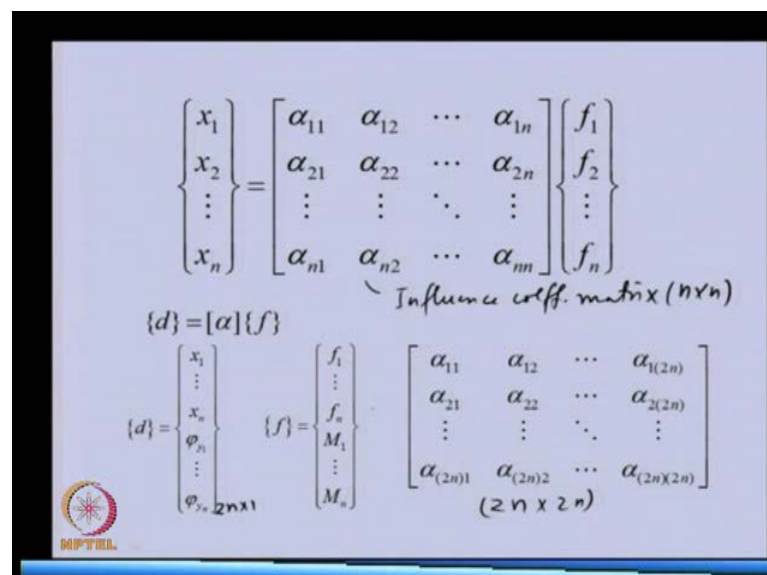 {x₁ x₂ ⋮ xₙ} = [α₁₁ α₁₂ ⋯ α₁ₙ; α₂₁ α₂₂ ⋯ α₂ₙ; ⋮ ⋮ ⋱ ⋮; αₙ₁ αₙ₂ ⋯ αₙₙ] {f₁ f₂ ⋮ fₙ}
Influence coeff. matrix (n×n)
{d} = [α]{f}
{d} = {x₁ ⋮ xₙ φ_y₁ ⋮ φ_yₙ} 2n×1 {f} = {f₁ ⋮ fₙ M₁ ⋮ Mₙ} [α₁₁ α₁₂ ⋯ α₁₍₂ₙ₎; α₂₁ α₂₂ ⋯ α₂₍₂ₙ₎; ⋮ ⋮ ⋱ ⋮; α₍₂ₙ₎₁ α₍₂ₙ₎₂ ⋯ α₍₂ₙ₎₍₂ₙ₎]
(2n × 2n)
NPTEL